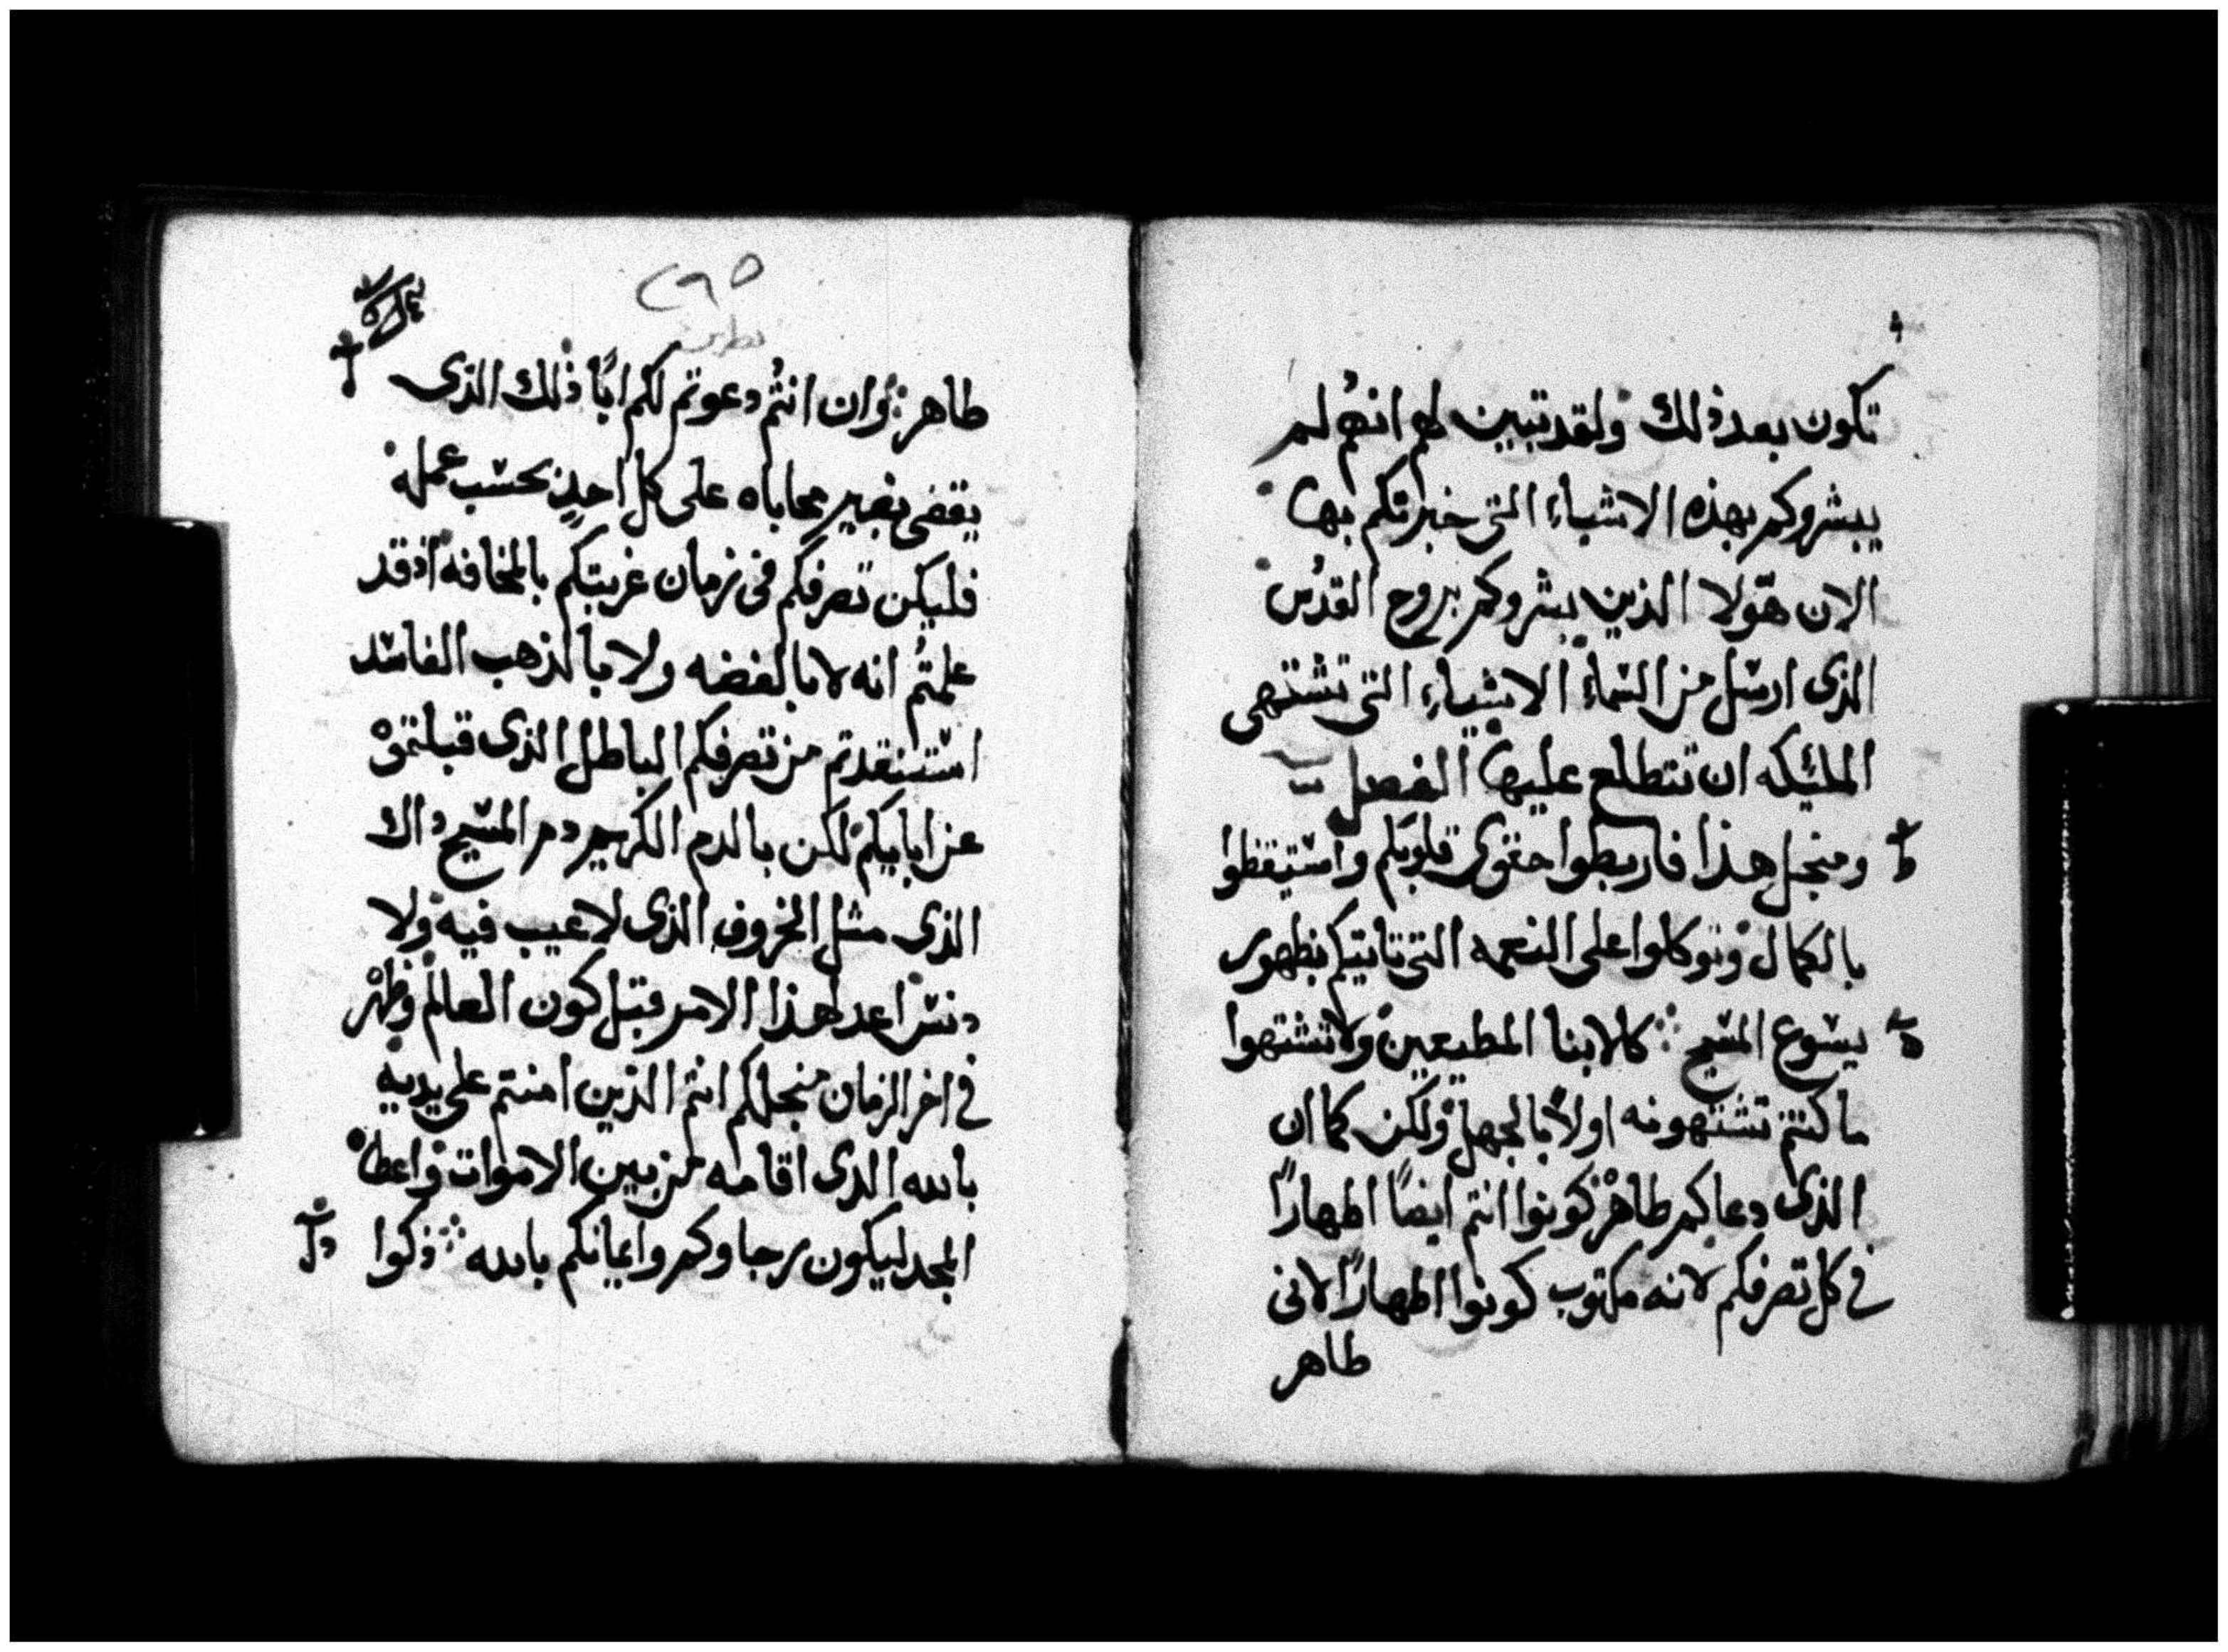 تكون بعد ذلك ولقد تبين لهم انهم لم
يبشروكم بهذه الاشياء التى خبرتكم بها
الان هولا الذين بشروكم بروح القدس
الذى ارسل من السماء الاشياء التى تشتهى
المليكه ان تتطلع عليها الفصل
ومنجل هذا فاربطوا حقوى قلوبكم واستيقظوا
بالكمال وتوكلوا على النعمه التى تاتيكم بظهور
يسوع المسيح كالابنا المطيعين ولا تشتهوا
ما كنتم تشتهونه اولًا بالجهل ولكن كما ان
الذى دعاكم طاهر كونوا انتم ايضًا اطهارًا
فى كل تصرفكم لانه مكتوب كونوا اطهارًا لانى
طاهر
٢٩٥
طاهر وان انتم دعوتم لكم ابًا ذلك الذى
يقضى بغير محاباه على كل احدٍ بحسب عمله
فليكن تصرفكم فى زمان غربتكم بالمخافه اذ قد
علمتم انه لا بالفضه ولا بالذهب الفاسد
استنقدتم من تصرفكم الباطل الذى قبلتموه
عن ابايكم لكن بالدم الكريم دم المسيح داك
الذى مثل الخروف الذى لا عيب فيه ولا
دنس اعد لهذا الامر قبل كون العالم وظهر
فى اخر الزمان منجلكم انتم الذين امنتم على يديه
بالله الذى اقامه من بين الاموات واعطاه
المجد ليكون رجاوكم وايمانكم بالله ذكوا